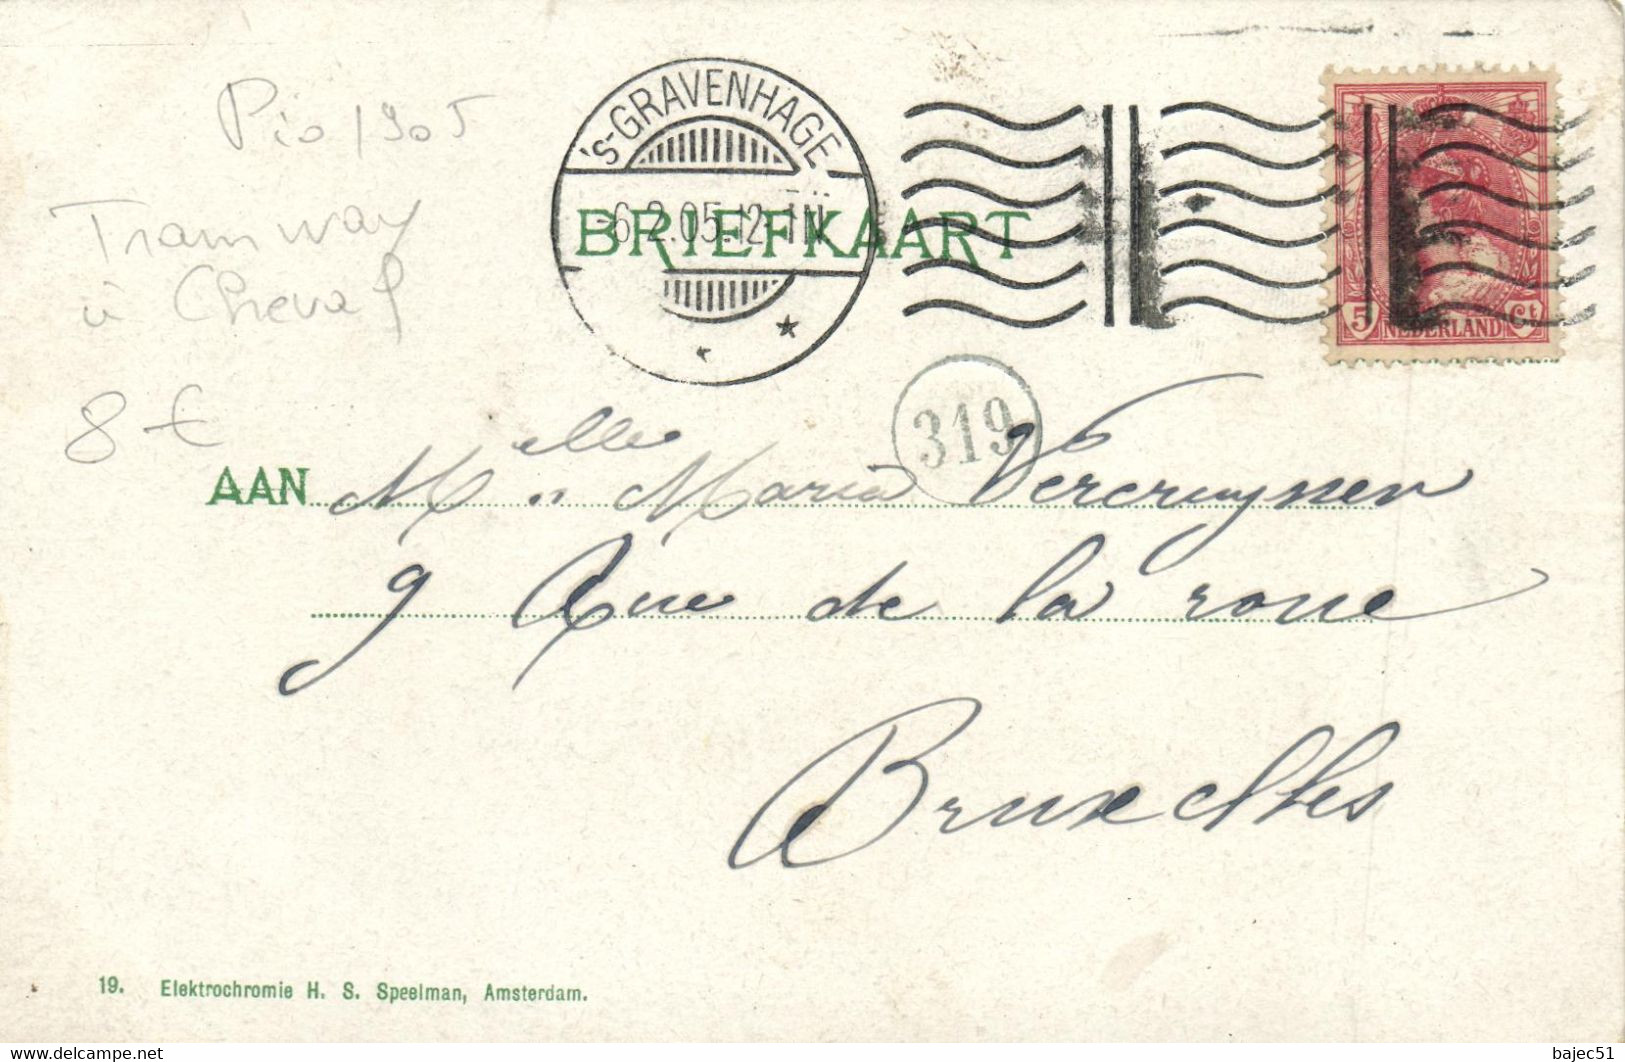 Pio 1905
Tramway
à Cheval
8 €
's-GRAVENHAGE
-6.2.05.12-1N
BRIEFKAART
5 NEDERLAND Ct
319
AAN Melle Maria Vercruyssen
9 Rue de la roue
Bruxelles
19. Elektrochromie H. S. Speelman, Amsterdam.
http://www.delcampe.net
bajec51